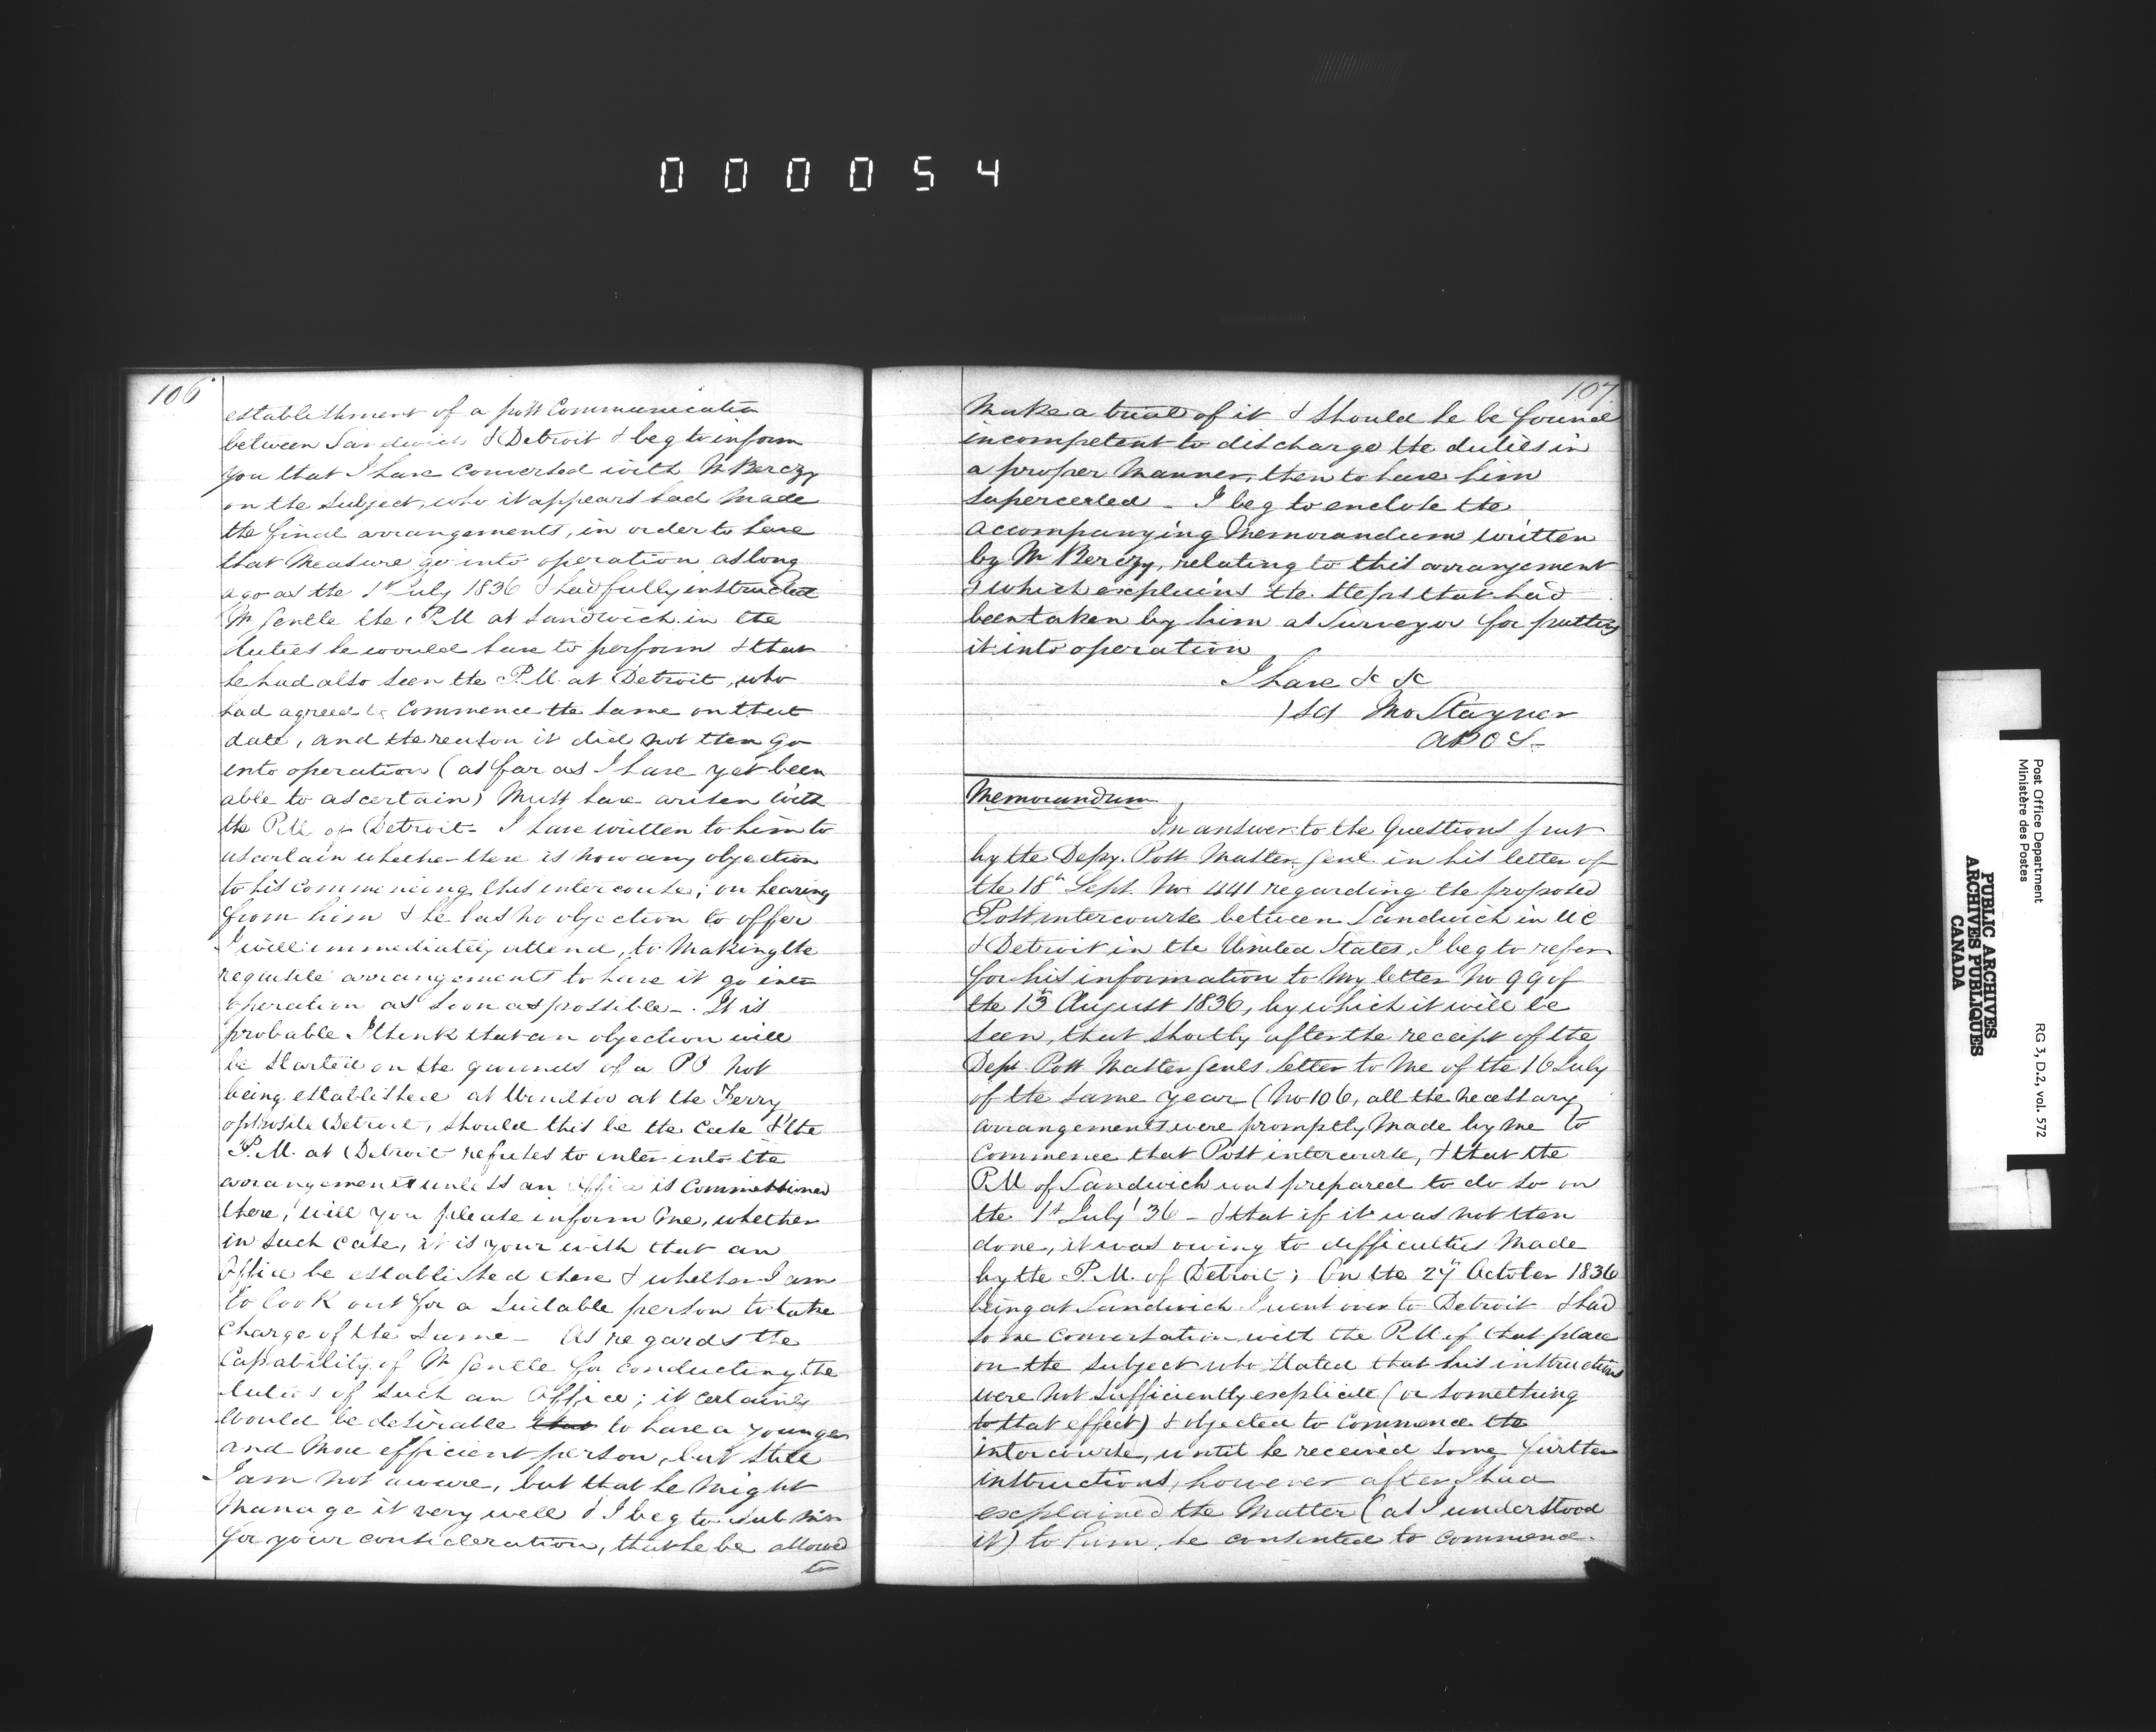 000054
106
establishment of a post Communication
between Sandwich & Detroit & beg to inform
you that I have conversed with Mr Berczy
on the subject, who it appears had made
the final arrangements, in order to have
that Measure go into operation as long
ago as the 1st July 1836 & had fully instructed
Mr Gentle the P.M at Sandwich in the
duties he would have to perform & that
he had also seen the P.M. at Detroit, who
had agreed to Commence the same on that
date, and the reason it did not then go
into operation (as far as I have yet been
able to ascertain) Must have arisen with
the P.M of Detroit - I have written to him to
ascertain whether there is now any objection
to his commencing this intercourse; on hearing
from him & he has no objection to offer
I will immediately attend, to Making the
requisite arrangements to have it go into
operation as soon as possible - . It is
probable I think that an objection will
be started on the grounds of a PO not
being established at Windsor at the Ferry
opposite Detroit, should this be the case & the
P.M. at Detroit refuses to enter into the
arrangement unless an office is Commissioned
there, will you please inform me, whether
in such case, it is your wish that an
Office be established there & whether I am
to look out for a suitable person to take
charge of the same - As regards the
Capability of Mr Gentle for conducting the
duties of such an Office; it certainly
would be desirable that to have a younger
and more efficient person, but still
I am not aware, but that he might
Manage it very well & I beg to submit
for your consideration, that he be allowed
to
107
Make a trial of it & should he be found
incompetent to discharge the duties in
a proper Manner, then to have him
superceded - I beg to enclose the
accompanying Memorandum written
by Mr Berczy, relating to this arrangement
& which explains the steps that had
been taken by him as Surveyor for putting
it into operation
I have &c &c
Stayner
Memorandum
In answer to the Questions put
by the Depy. Post Master Genl. in his letter of
the 18th Sept No 441 regarding the proposed
Post intercourse between Sandwich in UC
& Detroit in the United States, I beg to refer
for his information to My letter No 99 of
the 13th August 1836, by which it will be
seen, that shortly after the receipt of the
Dept Post Master Genls letter to Me of the 16 July
of the same year (No 106, all the necessary
arrangements were promptly Made by me to
Commence that Post intercourse, & that the
P.M of Sandwich was prepared to do so on
the 1st July '36 - & that if it was not then
done, it was owing to difficulties Made
by the P.M. of Detroit; On the 27th October 1836
being at Sandwich I went over to Detroit & had
some conversation with the P.M of that place
on the subject who stated that his instructions
were not sufficiently explicit (or something
to that effect) & objected to Commence the
intercourse, until he received some further
instructions, however after I had
explained the Matter (as I understood
it) to him, he consented to commence.
Post Office Department
Ministère des Postes
RG 3, D.2, vol. 572
PUBLIC ARCHIVES
ARCHIVES PUBLIQUES
CANADA